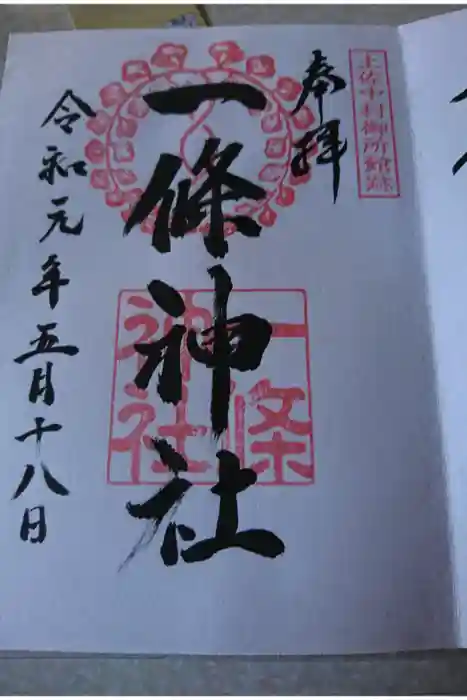 土佐中村御所館跡
奉拝
一條神社
一條神社
令和元年五月十八日